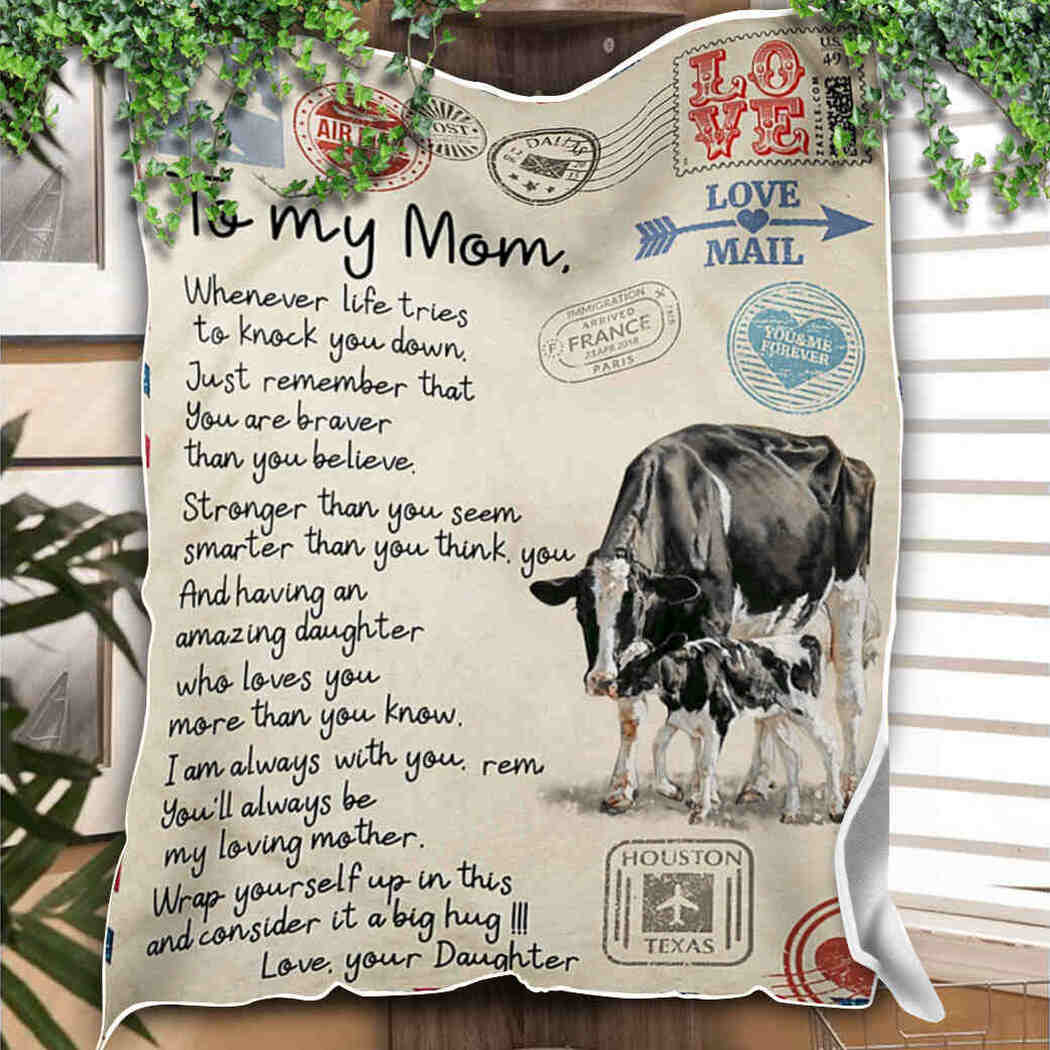 AIR
POST
DALLAS
LOVE
U.S.
49
ZAZZLE.COM
LOVE
MAIL
To my Mom,
IMMIGRATION
ARRIVED
F FRANCE
23 APR 2018
PARIS
YOU & ME
FOREVER
Whenever life tries
to knock you down,
Just remember that
You are braver
than you believe,
Stronger than you seem
smarter than you think, you
And having an
amazing daughter
who loves you
more than you know.
I am always with you. rem
You'll always be
my loving mother.
Wrap yourself up in this
and consider it a big hug !!!
Love, your Daughter
HOUSTON
TEXAS